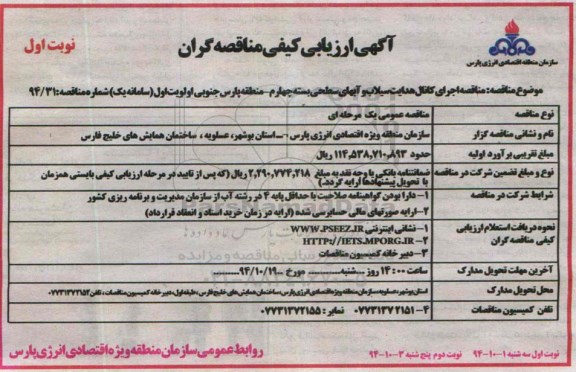 آگهی ارزیابی کیفی مناقصه گران
نوبت اول
سازمان منطقه ویژه اقتصادی انرژی پارس
موضوع مناقصه: مناقصه اجرای کانال هدایت سیلاب و آبهای سطحی بسته چهارم - منطقه پارس جنوبی اولویت اول (سامانه یک) شماره مناقصه: ۹۴/۳۱
نوع مناقصه
مناقصه عمومی یک مرحله ای
نام و نشانی مناقصه گزار
سازمان منطقه ویژه اقتصادی انرژی پارس - استان بوشهر، عسلویه، ساختمان همایش های خلیج فارس
مبلغ تقریبی برآورد اولیه
حدود ۱۱۴,۵۳۸,۷۱۰,۸۹۳ ریال
نوع و مبلغ تضمین شرکت در مناقصه
ضمانتنامه بانکی یا وجه نقد به مبلغ ۲,۲۹۰,۷۷۴,۲۱۸ ریال (که پس از تایید در مرحله ارزیابی کیفی بایستی همزمان
با تحویل پیشنهادها ارایه گردد.)
شرایط شرکت در مناقصه
۱- دارا بودن گواهینامه صلاحیت با حداقل پایه ۴ در رشته آب از سازمان مدیریت و برنامه ریزی کشور
۲- ارایه صورتهای مالی حسابرسی شده (ارایه در زمان خرید اسناد و انعقاد قرارداد)
نحوه دریافت استعلام ارزیابی
کیفی مناقصه گران
۱- نشانی اینترنتی WWW.PSEEZ.IR
۲- HTTP://IETS.MPORG.IR
۳- دبیر خانه کمیسیون مناقصات
آخرین مهلت تحویل مدارک
ساعت ۱۴:۰۰ روز ....شنبه.... مورخ ۹۴/۱۰/۱۹
محل تحویل مدارک
استان بوشهر، عسلویه، سازمان منطقه ویژه اقتصادی انرژی پارس، ساختمان همایش های خلیج فارس، طبقه اول، دبیر خانه کمیسیون مناقصات، تلفن ۰۷۷۳۱۳۷۲۱۵۲
تلفن کمیسیون مناقصات
۴-۰۷۷۳۱۳۷۲۱۵۱ نمابر: ۰۷۷۳۱۳۷۲۱۵۵
نوبت اول سه شنبه ۱-۱۰-۹۴ نوبت دوم پنج شنبه ۳-۱۰-۹۴
روابط عمومی سازمان منطقه ویژه اقتصادی انرژی پارس